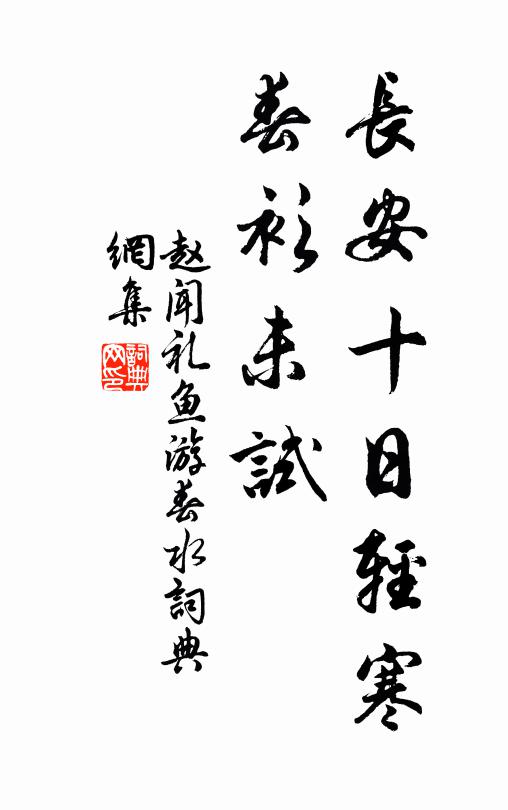 長安十日輕寒
春衫未試
赵闻礼鱼游春水詞典
網集
詞典
网印